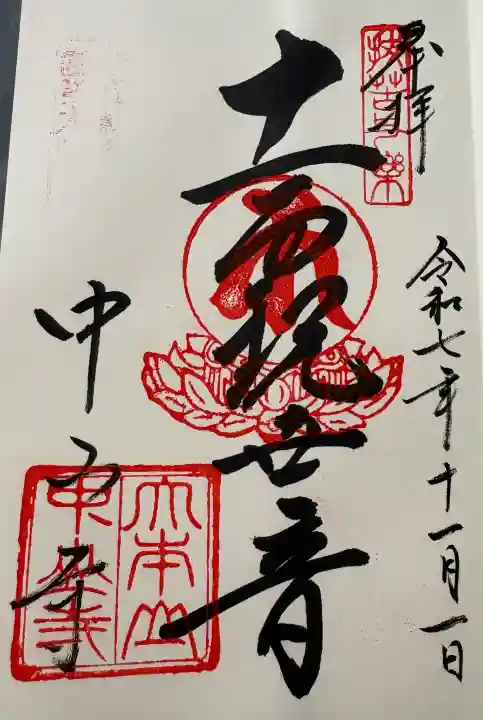 奉拝
令和七年十一月一日
十一面観世音
中山寺
大本山
中山寺